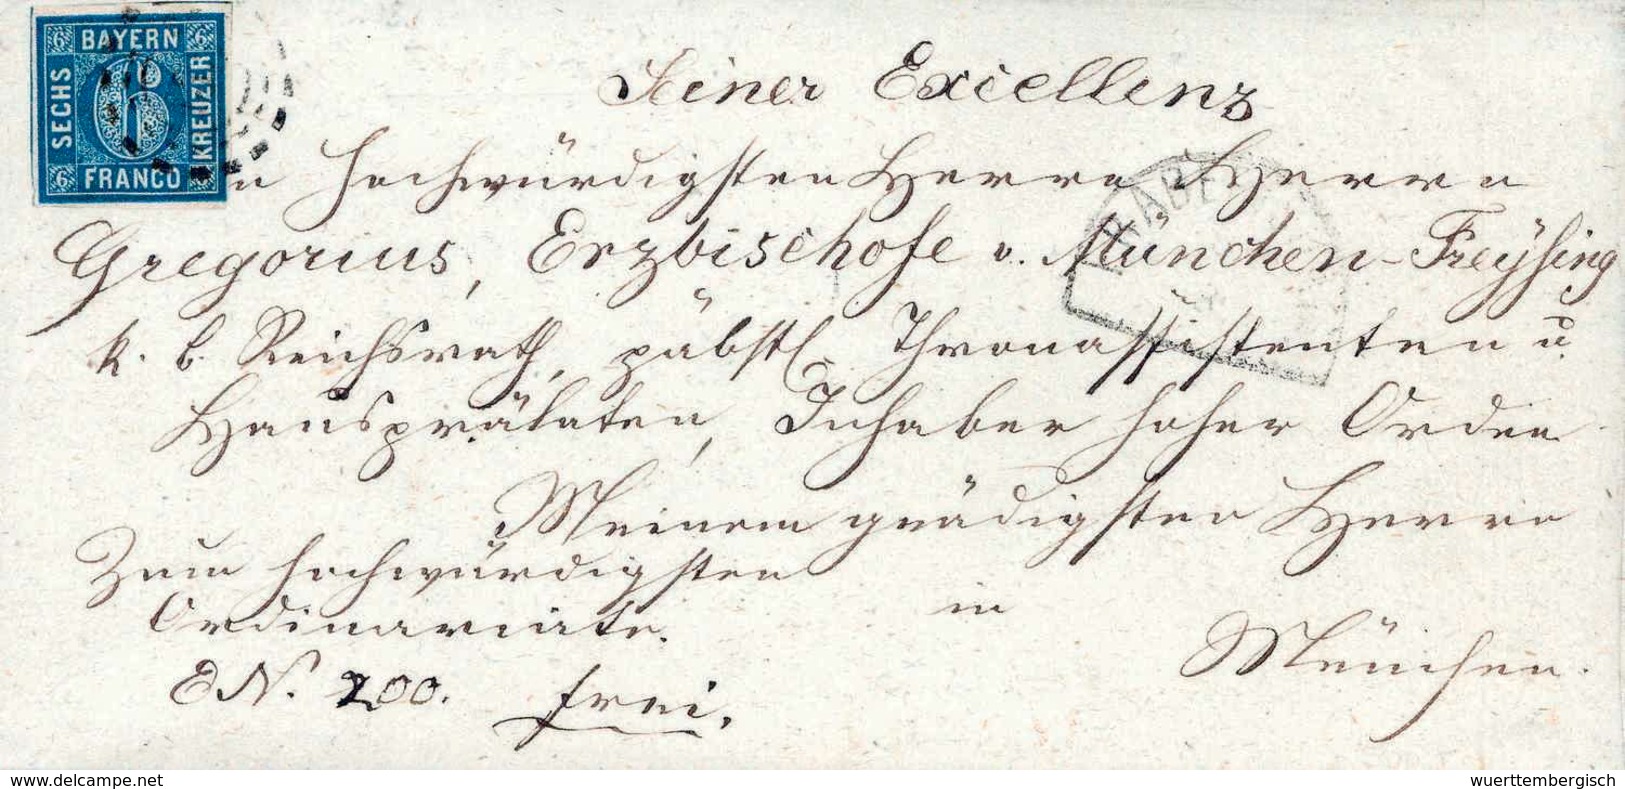 6 BAYERN 6
SECHS
KREUZER
6
6 FRANCO 6
Seiner Excellenz
n hochwürdigsten Herrn Herrn
Gregorius, Erzbischofe v. München-Freysing
k. b. Reichsrath, päbstl. Thronassistenten u.
Hausprälaten, Inhaber hoher Orden
Meinem gnädigsten Herrn
Zum hochwürdigsten
Ordinariate.
in
München.
EN. 200. frei.
www.delcampe.net
wuerttembergisch